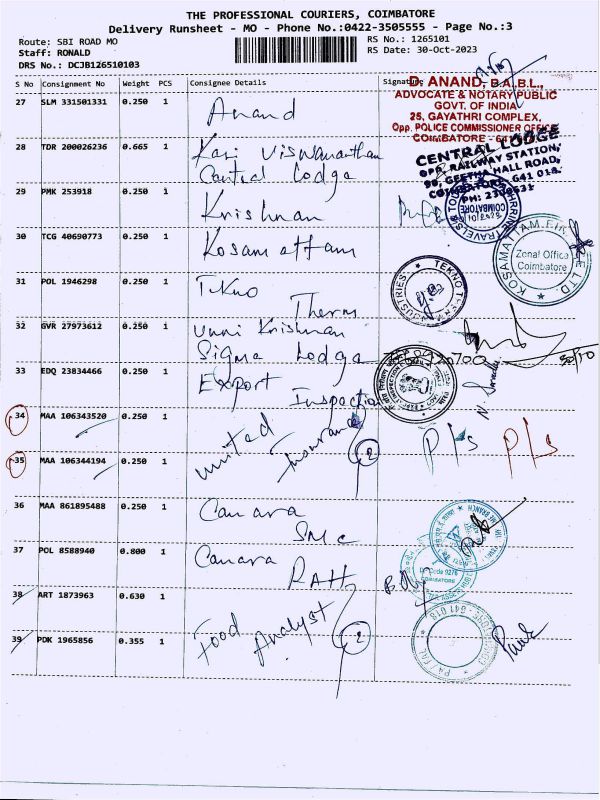 THE PROFESSIONAL COURIERS, COIMBATORE
Delivery Runsheet - MO - Phone No.:0422-3505555 - Page No.:3
Route: SBI ROAD MO
RS No.: 1265101
Staff: RONALD
RS Date: 30-Oct-2023
DRS No.: DCJB126510103
S No Consignment No Weight PCS Consignee Details Signature
27 SLM 331501331 0.250 1 Anand
D. ANAND, B.A.B.L.,
ADVOCATE & NOTARY PUBLIC
GOVT. OF INDIA
25, GAYATHRI COMPLEX,
Opp. POLICE COMMISSIONER OFFICE
COIMBATORE - 641
28 TDR 200026236 0.665 1 Kasi Viswananthan
Central Lodge
CENTRAL LODGE
OPP. RAILWAY STATION,
GEETHA HALL ROAD,
COIMBATORE - 641 018.
29 PMK 253918 0.250 1 Krishnan
COIMBATORE
30 TCG 40690773 0.250 1 Kosamattam
Zonal Office
Coimbatore
31 POL 1946298 0.250 1 Tekno
Therm
32 GVR 27973612 0.250 1 Unni Krishnan
Sigma Lodga
33 EDQ 23834466 0.250 1 Export
Inspection
34 MAA 106343520 0.250 1 United
Insurance
P/s P/s
35 MAA 106344194 0.250 1
2
36 MAA 861895488 0.250 1 Canara
SMC
37 POL 8588940 0.800 1 Canara
RAH
COIMBATORE
38 ART 1873963 0.630 1 Food
Analyst
39 PDK 1965856 0.355 1
2